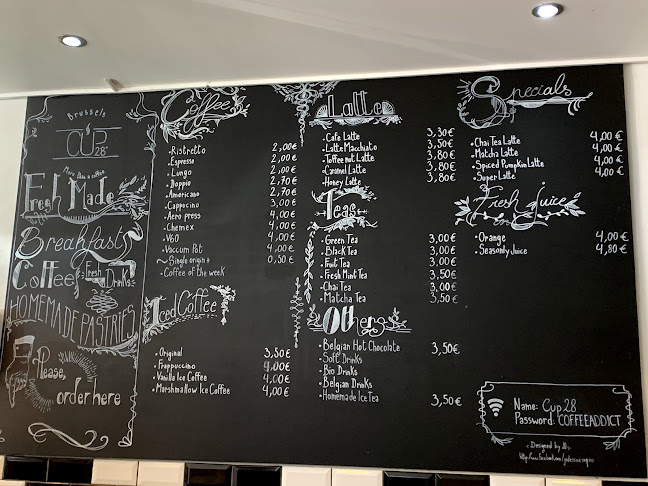 Brussels
CUP 28°
More than a coffee
Fresh Made
Breakfasts
Coffee Fresh Drinks
HOMEMADE PASTRIES
Please,
order here
Coffee
• Ristretto 2,00€
• Espresso 2,00€
• Lungo 2,00€
• Doppio 2,70€
• Americano 2,70€
• Cappucino 3,00€
• Aero press 4,00€
• Chemex 4,00€
• V60 4,00€
• Vaccum Pot 4,00€
~ Single origin+ 0,50€
• Coffee of the week
Iced Coffee
• Original 3,50€
• Frappuccino 4,00€
• Vanilla Ice Coffee 4,00€
• Marshmallow Ice Coffee 4,00€
Latte
• Cafe Latte 3,30€
• Latte Macchiato 3,50€
• Toffee nut Latte 3,80€
• Caramel Latte 3,80€
• Honey Latte 3,80€
Teas
• Green Tea 3,00€
• Black Tea 3,00€
• Fruit Tea 3,00€
• Fresh Mint Tea 3,50€
• Chai Tea 3,00€
• Matcha Tea 3,50€
Others
• Belgian Hot Chocolate 3,50€
• Soft Drinks
• Bio Drinks
• Belgian Drinks
• Homemade Ice Tea 3,50€
Specials
• Chai Tea Latte 4,00€
• Matcha Latte 4,00€
• Spiced Pumpkin Latte 4,00€
• Super Latte 4,00€
Fresh Juice
• Orange 4,00€
• Seasonly Juice 4,80€
Name: Cup 28
Password: COFFEEADDICT
Designed by